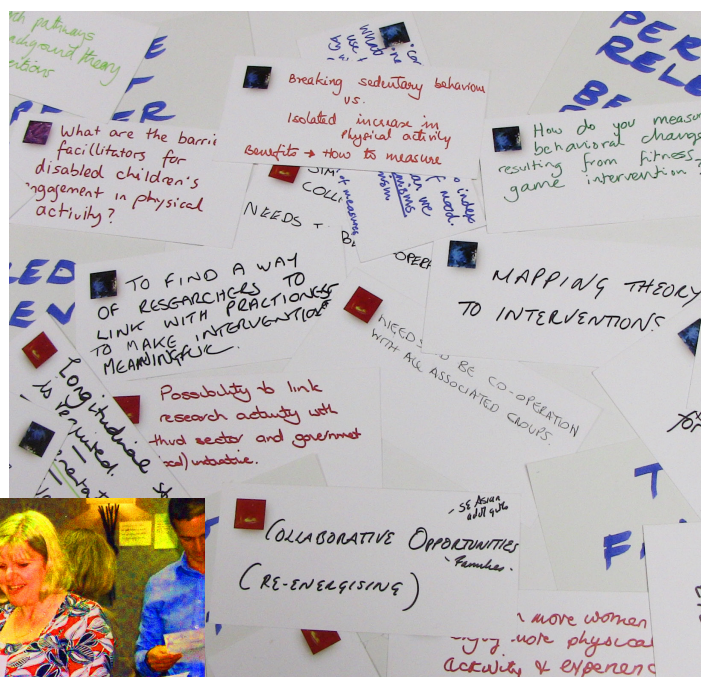 pathways
background theory
What
use
Breaking sedentary behaviour
vs.
Isolated increase in
physical activity
Benefits → How to measure
PER
RELE
BE
What are the barri
facillitators for
disabled children's
ngagement in physical
activity?
How do you measu
behavioral change
resulting from fitness
game intervention?
COLL
NEEDS
index
we
mood.
of measures
OPER
LED
EV
TO FIND A WAY
OF RESEARCHERS TO
LINK WITH PRACTIONERS
TO MAKE INTERVENTION
MEANINGFUL.
MAPPING THEORY
TO INTERVENTIONS
NEEDS TO BE CO-OPERATION
WITH ALL ASSOCIATED GROUPS.
Longitudinal s
is required.
Possibility to link
research activity with
third sector and government
ocal) initiative.
for
- SE Asian
adult girls
COLLABORATIVE OPPORTUNITIES
- Families.
(RE-ENERGISING)
T
F
more women
enjoy more physical
activity & experienc